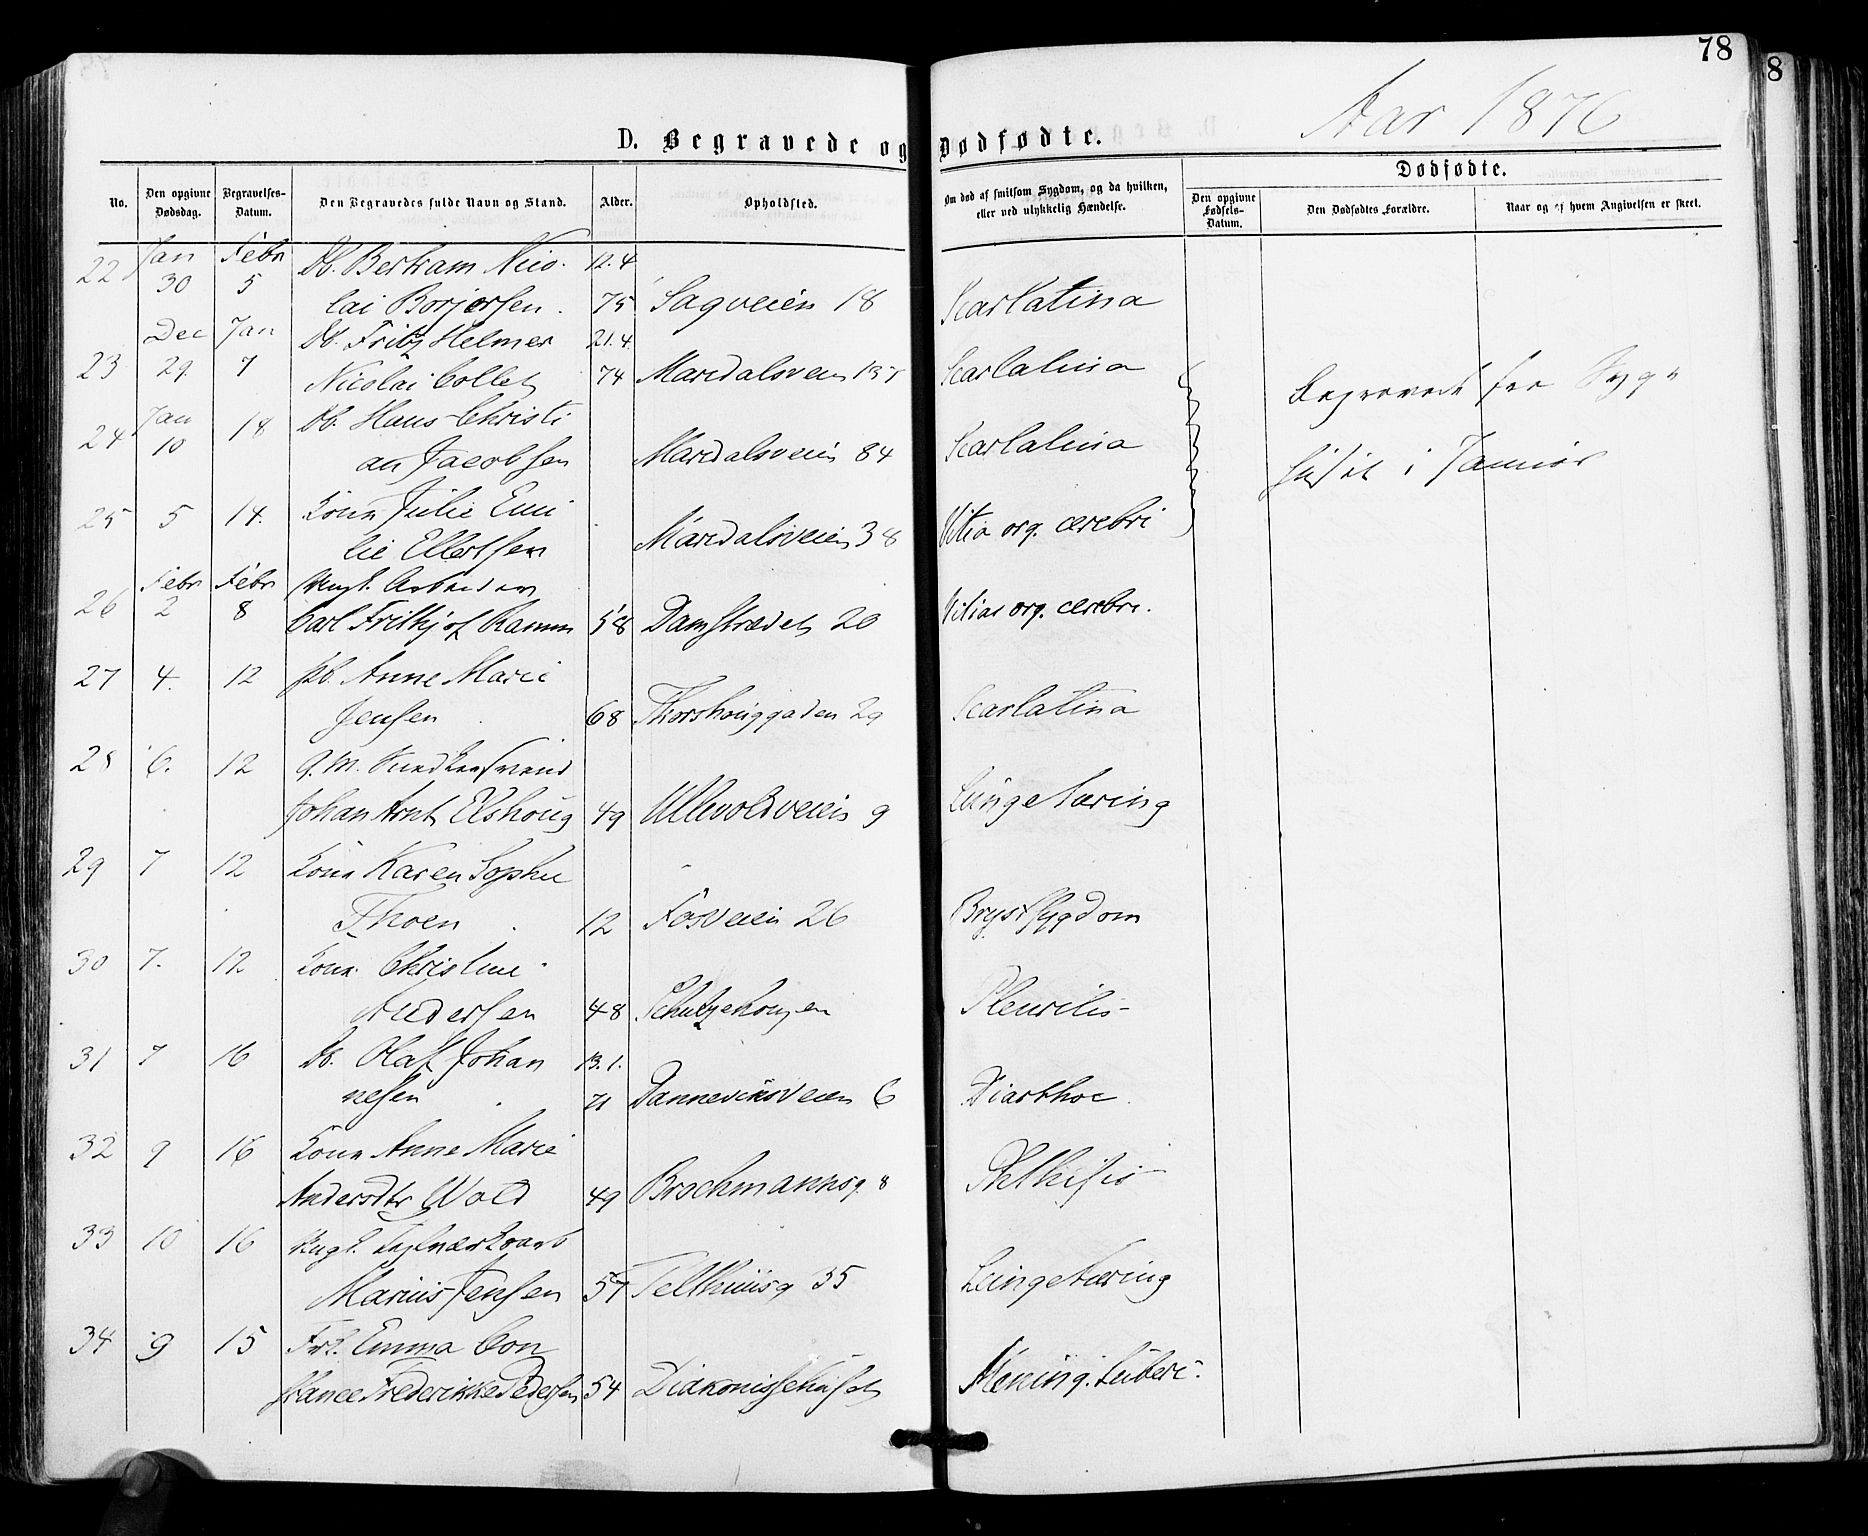 78
8
Aar 1876
D. Begravede og Dødfødte.
No.
Den opgivne Dødsdag.
Begravelses-Datum.
Den Begravedes fulde Navn og Stand.
Alder.
Opholdsted.
Om død af smitsom Sygdom, og da hvilken, eller ved ulykkelig Hændelse.
Dødfødte.
Den opgivne Fødsels-Datum.
Den Dødfødtes Forældre.
Naar og af hvem Angivelsen er skeet.
Jan Febr Db. Bertram Nico- 12.4
22 30 5 lai Borjersen 75 Sagveien 18 Scarlatina
Dec Jan Db. Fritz Helmer 21.4.
23 29 7 Nicolai Collet 74 Maridalsveien Scarlatina
Jan
24 10 18 Db. Hans Christi
an Jacobsen Maridalsveien 84 Scarlatina
Begravede fra Syge
huset i Januar
25 5 14. Kone Julie Emi
lie Ellertsen Maridalsveien 38 Vitia org. cerebri
Febr Febr Ungk. Arbeider
26 2 8 Carl Frithjof Ramm 58 Damstrædet 20 Vitias org. cerebri.
27 4. 12 Pb. Anne Marie
Jensen 68 Thorshouggaden 29 Scarlatina
28 6. 12 G. M. Snedkersvend
Johan Arnt Elshoug 49 Ullevoldveien 9 Lungetæring
29 7 12 Kone Karen Sophie
Thoen 12 Fosveien 26 Brystsygdom
30 7. 12 Kone Christine
Andersen 48 Schultzehougen Pleuritis
31 7 16 Db. Olaf Johan 13.1.
nesen 71 Dannevigsveien 6 Diarrhoe.
32 9 16 Kone Anne Marie
Andersdtr Wold 49 Brochmannsg. 8 Phthisis
33 10 16 Ungk.
Marius Jensen 57 Telthusg 35 Lungetæring
34 9 15 Frk. Emma Con
stance Frederikke Pedersen 54 Diakonissehuset Mening. tuberc.